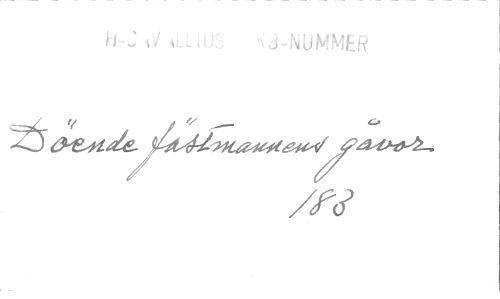 H-CAVALLIUS KB-NUMMER
Döende fästmannens gåvor
183